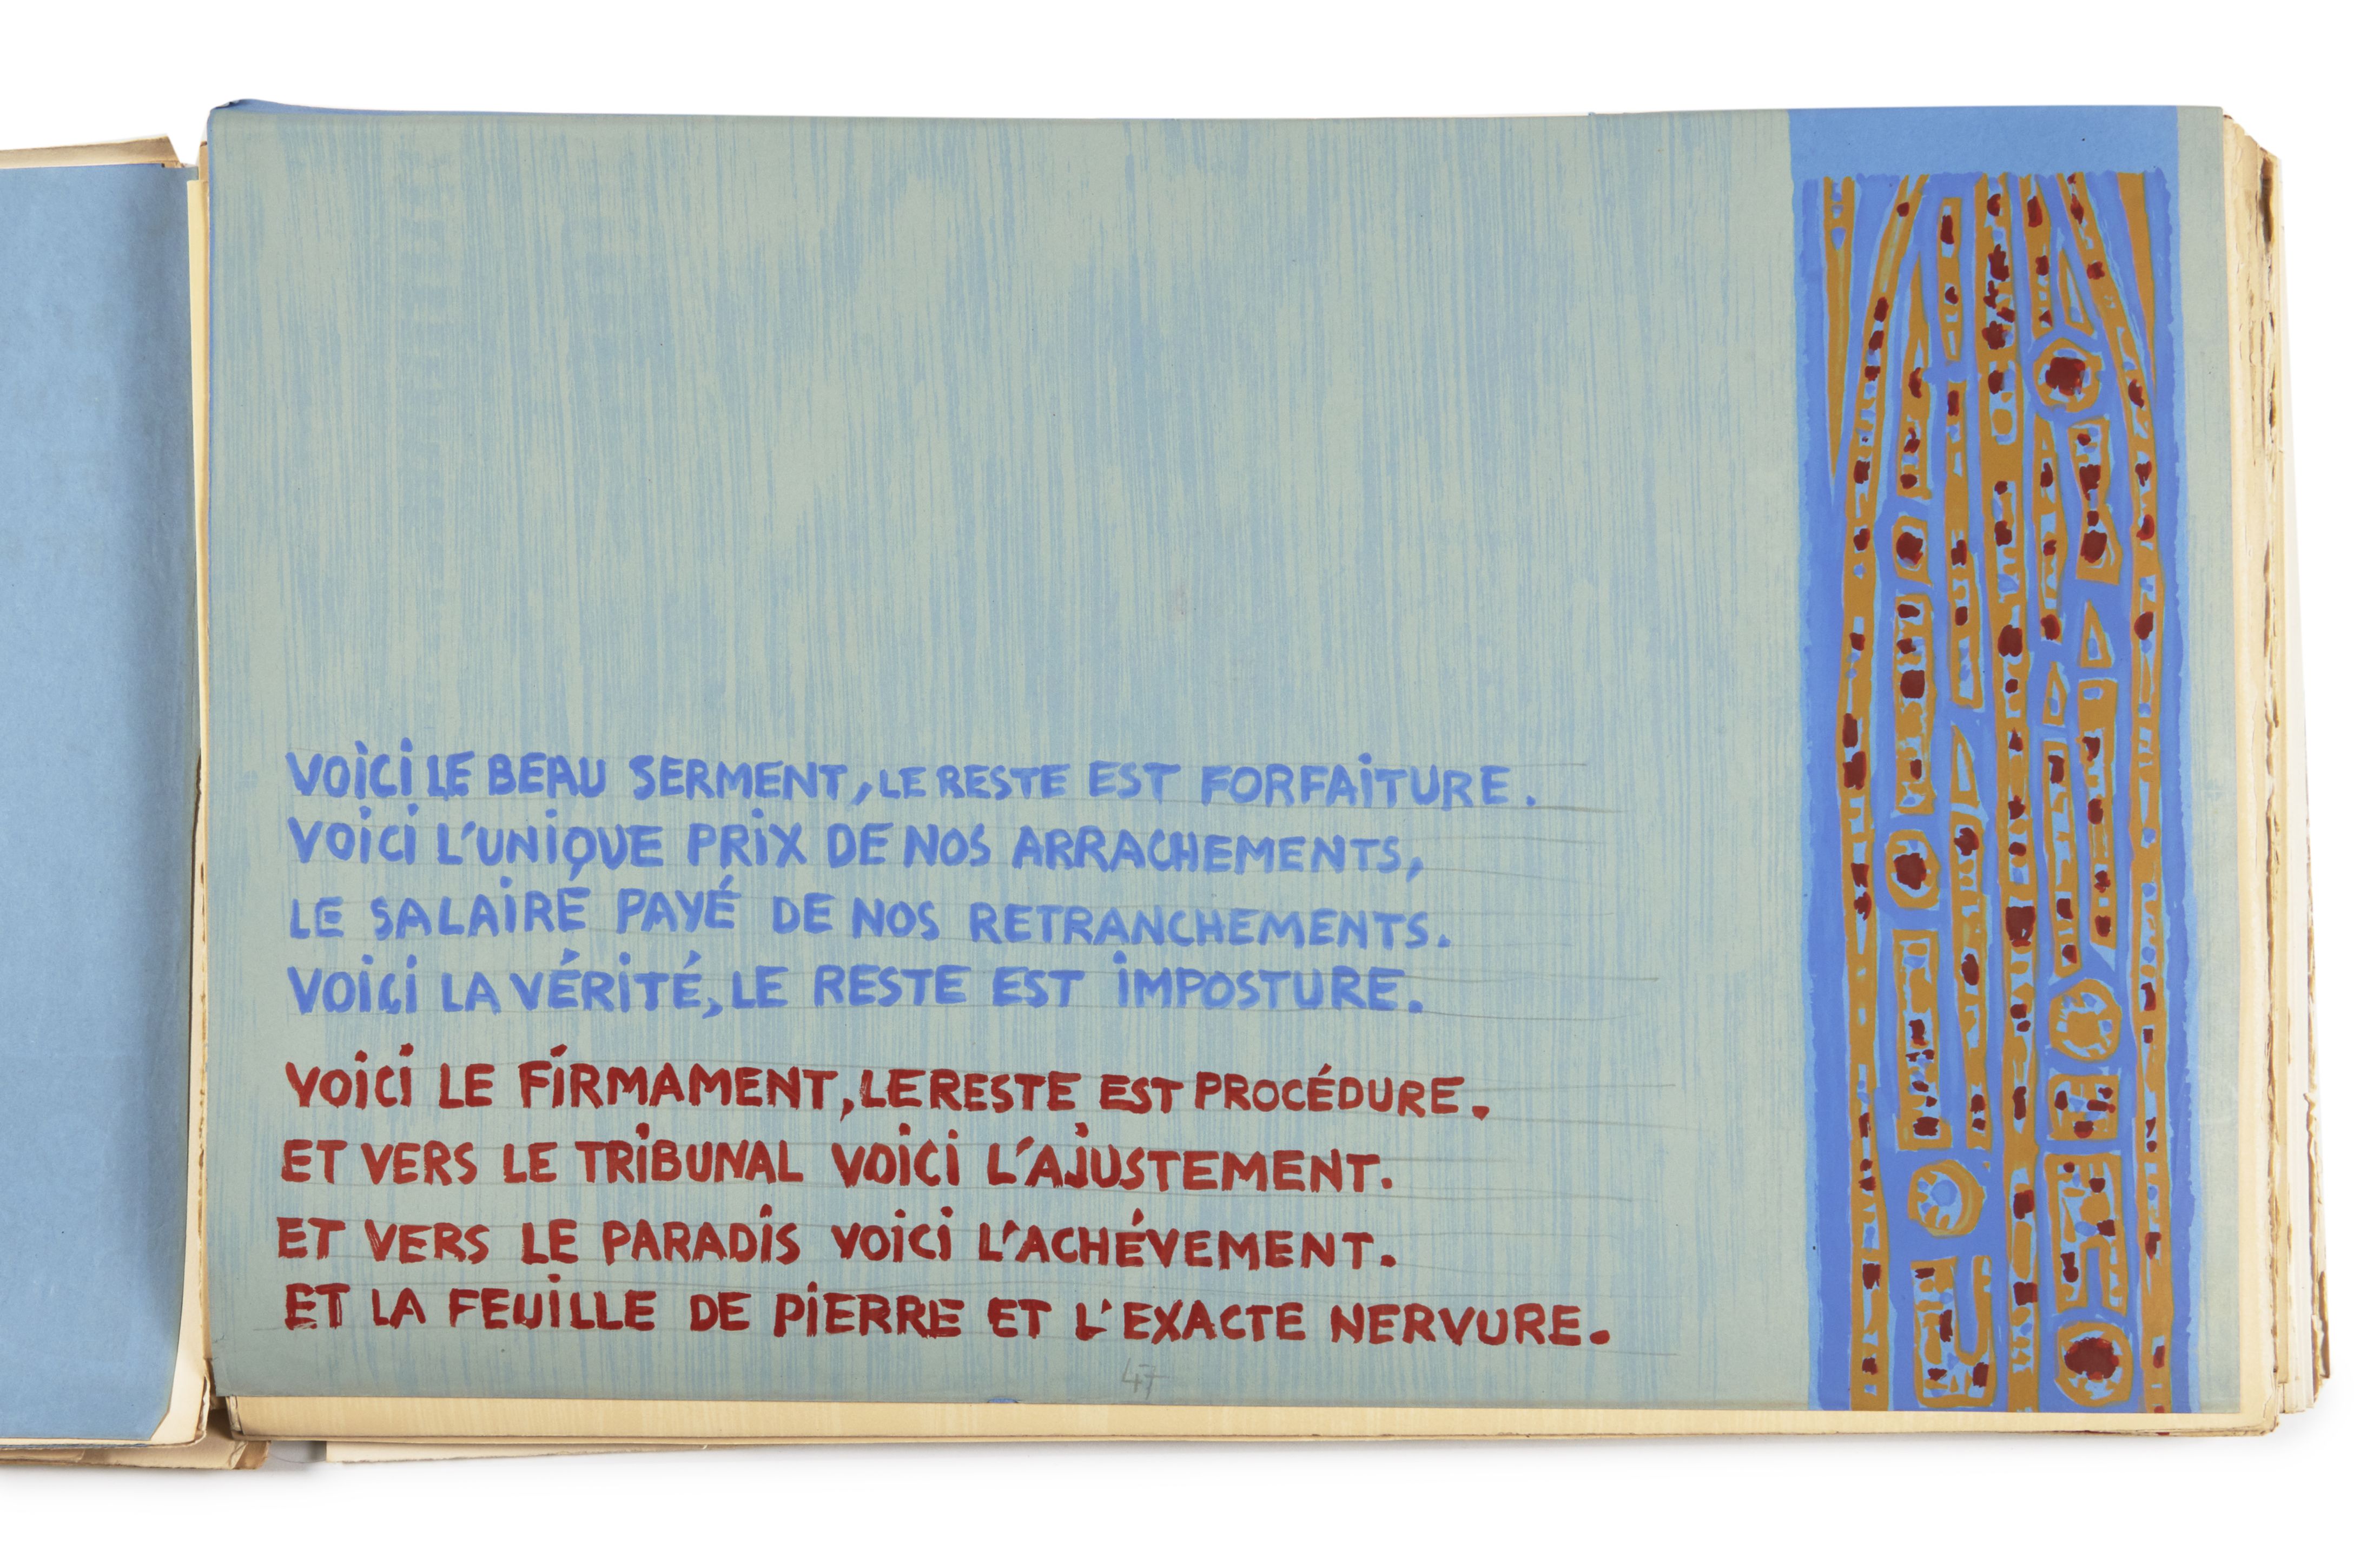 VOICI LE BEAU SERMENT, LE RESTE EST FORFAITURE.
VOICI L'UNIQUE PRIX DE NOS ARRACHEMENTS,
LE SALAIRE PAYÉ DE NOS RETRANCHEMENTS.
VOICI LA VÉRITÉ, LE RESTE EST IMPOSTURE.
VOICI LE FIRMAMENT, LE RESTE EST PROCÉDURE.
ET VERS LE TRIBUNAL VOICI L'AJUSTEMENT.
ET VERS LE PARADIS VOICI L'ACHÉVEMENT.
ET LA FEUILLE DE PIERRE ET L'EXACTE NERVURE.
47